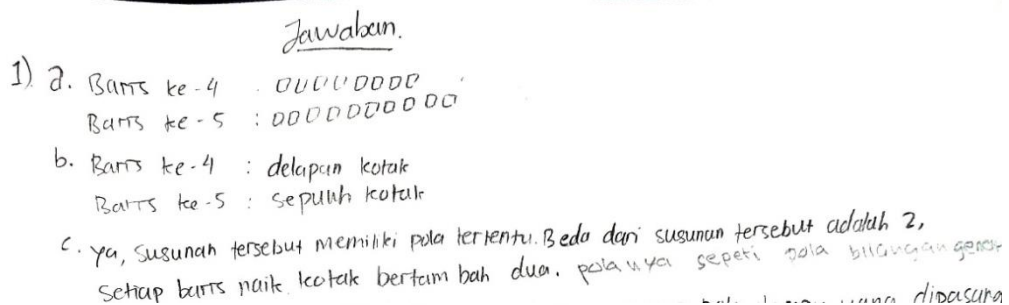 Jawaban.
1) a. Baris ke-4 : 口口口口口口口口
Baris ke-5 : 口口口口口口口口口口
b. Baris ke-4 : delapan kotak
Baris ke-5 : sepuluh kotak
c. ya, susunan tersebut memiliki pola tertentu. Beda dari susunan tersebut adalah 2,
Setiap baris naik kotak bertambah dua. polanya seperti pola bilangan genap
yang dipasang